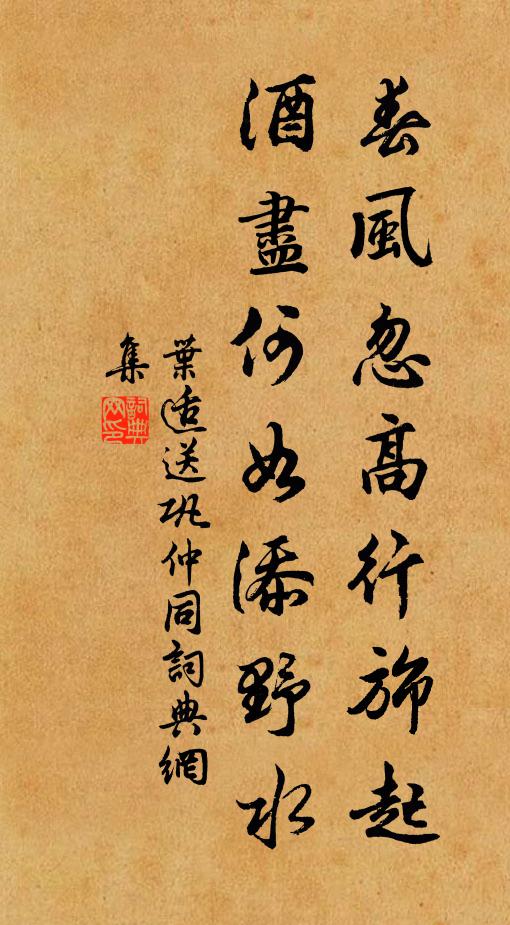 春風忽高行旆起
酒盡何如添野水
葉適送巩仲同詞典網
集
詞典
网印